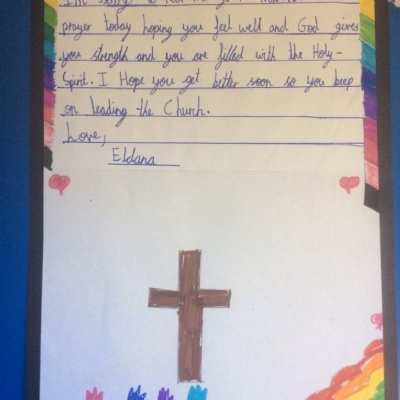 prayer today hoping you feel well and God gives
you strength and you are filled with the Holy-
Spirit. I Hope you get better soon so you keep
on leading the Church.
Love,
Eldana